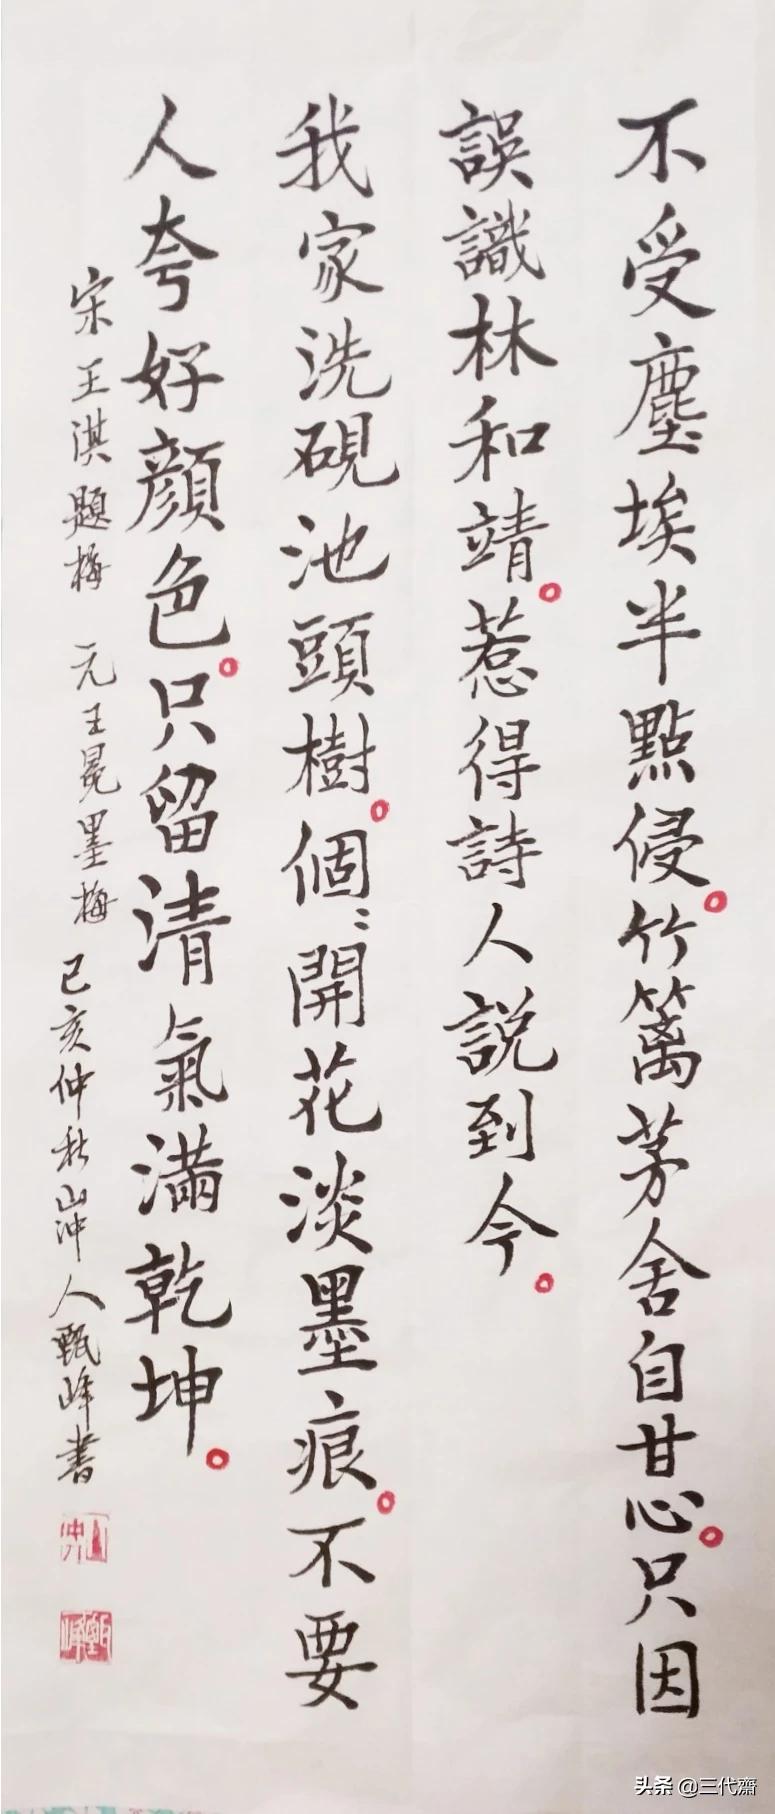 不受塵埃半點侵。竹篱茅舍自甘心。只因
誤識林和靖。惹得詩人説到今。
我家洗硯池頭樹。個〻開花淡墨痕。不要
人夸好顔色。只留清氣滿乾坤。
宋王淇題梅 元王冕墨梅 己亥仲秋山沖人甄峰書
山沖人
甄峰
头条 @三代齋